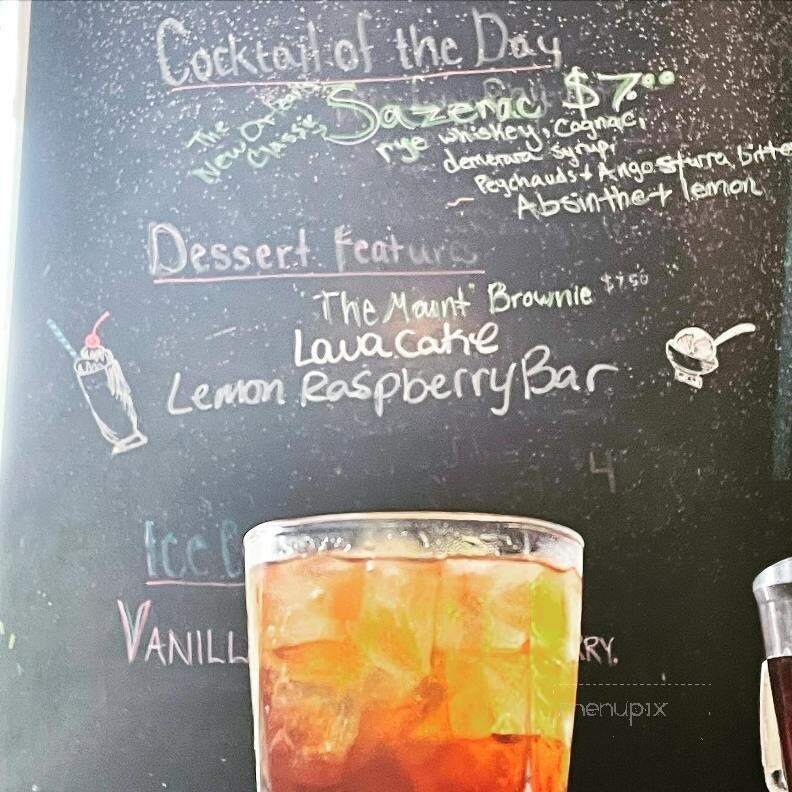 Cocktail of the Day
The New Orleans Classic
Sazerac $7.00
rye whiskey, Cognac,
demerara syrup,
Peychauds + Angosturra bitte
Absinthe + lemon
Dessert Features
"The Mount" Brownie $7.50
Lava Cake
Lemon Raspberry Bar
4
Ice C
VANILL RY.
menupix